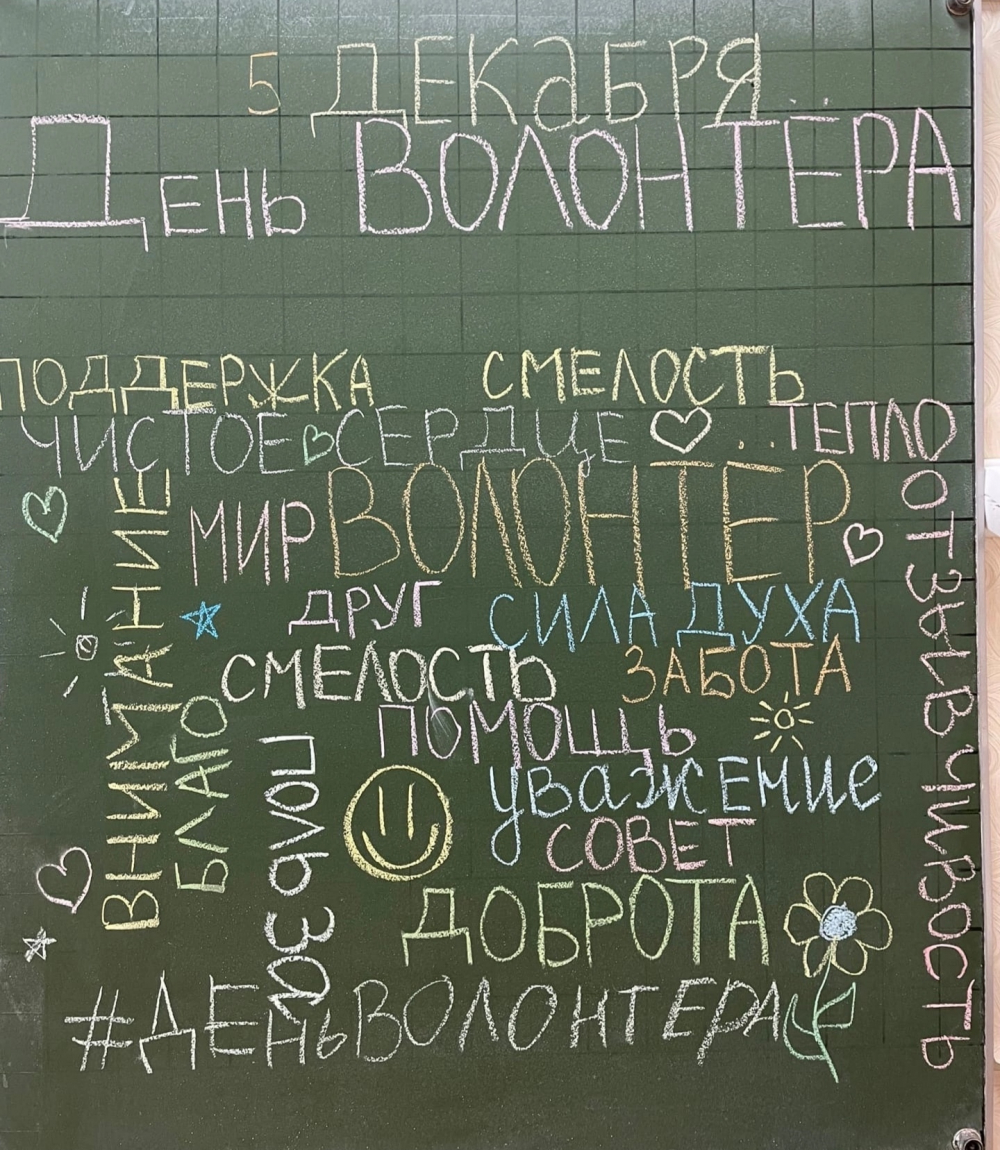 5 ДЕКаБРЯ
ДЕНЬ ВОЛОНТЁРА
ПОДДЕРЖКА СМЕЛОСТЬ
ЧИСТОЕ СЕРДЦЕ ТЕПЛО
ВНИМАНИЕ
МИР ВОЛОНТЁР
ОТЗЫВЧИВОСТЬ
ДРУГ СИЛА ДУХА
СМЕЛОСТЬ ЗАБОТА
БЛАГО
ПОМОЩЬ
ПОЛЬЗа
уважЕНие
СОВЕТ
ДОБРОТА
#ДЕНЬВОЛОНТЕРА